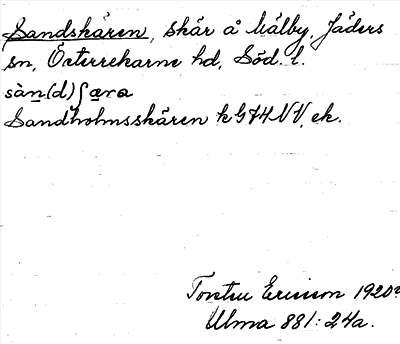 Sandskären, skär å Mälby, Jäders
sn, Österrekarne hd, Söd. l.
sàn(d)ʃæra
Sandholmsskären k G74 NV, ek.
Torsten Ericsson 1920
Ulma 881:24a.